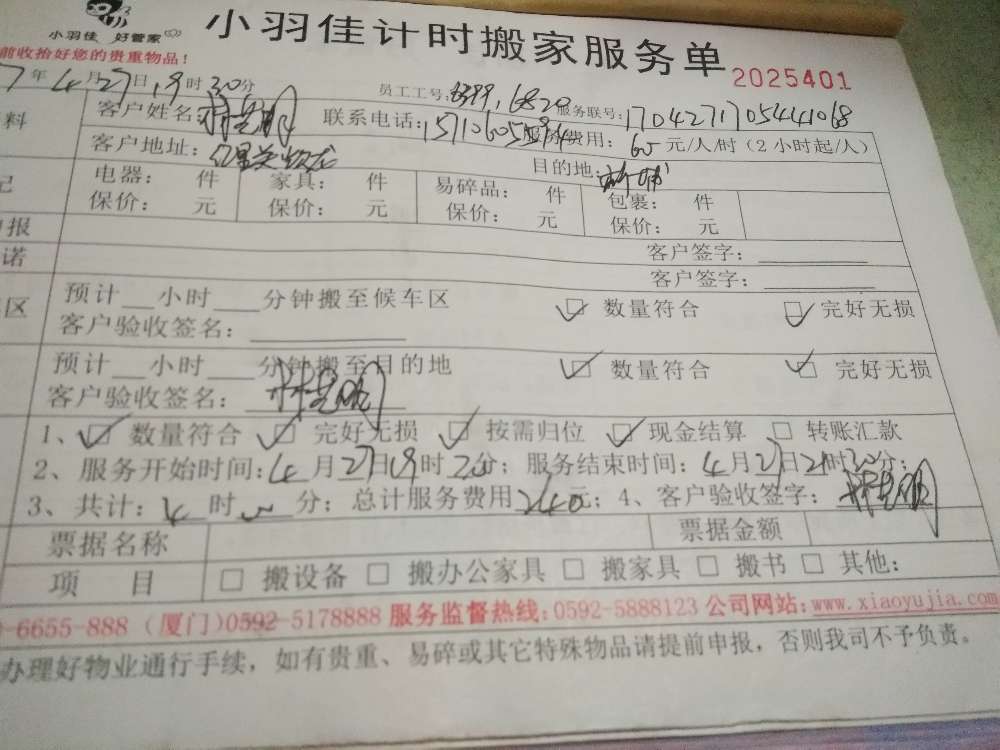 小羽佳 好管家
小羽佳计时搬家服务单
前收拾好您的贵重物品!
2025401
7年4月27日19时30分 员工工号: 服务联号:17042717054441068
料 客户姓名: 联系电话: 服务费用:60元/人/时(2小时起/人)
客户地址: 目的地:
记 电器: 件 家具: 件 易碎品: 件 包裹: 件
保价: 元 保价: 元 保价: 元 保价: 元
报 客户签字:
诺 客户签字:
区 预计 小时 分钟搬至候车区 数量符合 完好无损
客户验收签名:
预计 小时 分钟搬至目的地 数量符合 完好无损
客户验收签名:
1、 数量符合 完好无损 按需归位 现金结算 转账汇款
2、服务开始时间:4月27日19时30分;服务结束时间:4月27日21时30分;
3、共计:4时 分;总计服务费用240元;4、客户验收签字:
票据名称 票据金额
项 目 搬设备 搬办公家具 搬家具 搬书 其他:
0-6655-888 (厦门)0592-5178888 服务监督热线:0592-5888123 公司网站:www.xiaoyujia.com
办理好物业通行手续,如有贵重、易碎或其它特殊物品请提前申报,否则我司不予负责。